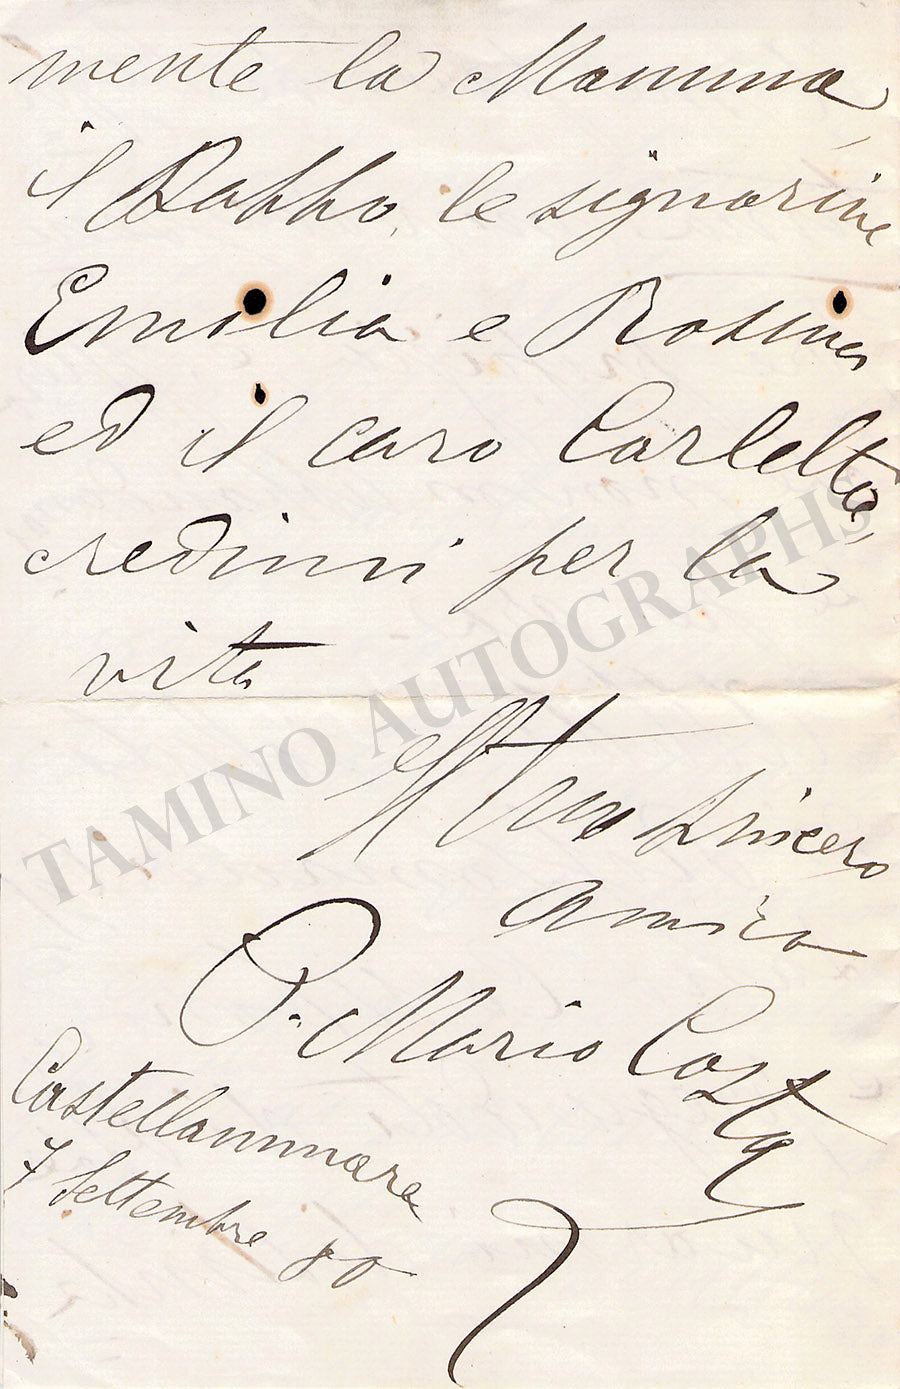 mente la Mamma,
il Babbo, le signorine
Emilia e Rosina
ed il caro Carletto,
credimi per la
vita
Il tuo sincero
amico
P. Mario Costa
Castellammare
7 Settembre 80
TAMINO AUTOGRAPHS